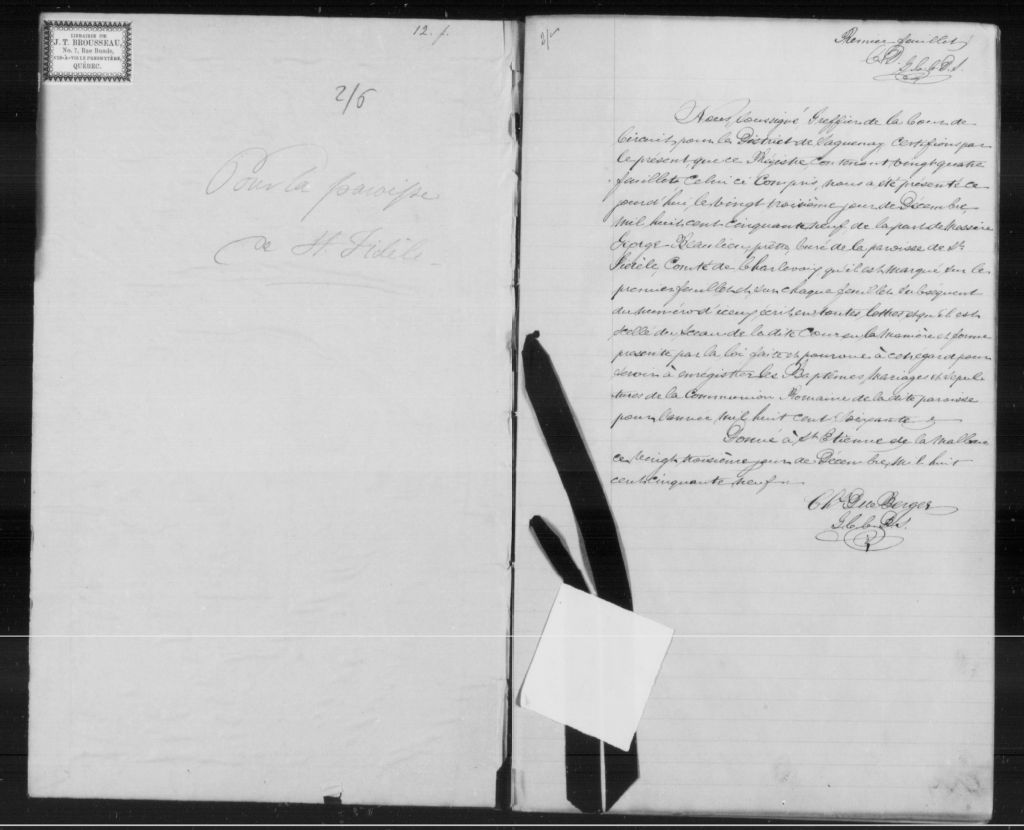 LIBRAIRIE DE
J. T. BROUSSEAU,
No. 7, Rue Buade,
VIS-À-VIS LE PRESBYTÈRE,
QUÉBEC.
12. f.
2/6
Pour la paroisse
de St. Fidèle
Premier feuillet
CD. G.C.C.D.S.
Nous, soussigné Greffier de la Cour de
Circuit, pour le District de Saguenay certifions par
le présent que ce Régistre, contenant vingt quatre
feuillets celui ci compris, nous a été présenté ce
jourd'hui, le vingt troisième jour de Décembre,
mil huit cent cinquante neuf de la part de Messire
George Beaulieu, prêtre, Curé de la paroisse de St.
Fidèle, Comté de Charlevoix, qu'il est marqué sur le
premier feuillet et sur chaque feuillet subséquent
du numéro d'iceux, écrit en toutes lettres et qu'il est
scellé du sceau de la dite Cour en la manière et forme
prescrite par la loi faite et pourvue à cet égard pour
servir à enregistrer les Baptêmes, Mariages et sépul-
tures de la Communion Romaine de la dite paroisse
pour l'année mil huit cent soixante.
Donné à St. Etienne de la Malbaie
ce vingt troisième jour de Décembre, mil huit
cent cinquante neuf.
Chs. Du Berger
G.C.C.D.S.